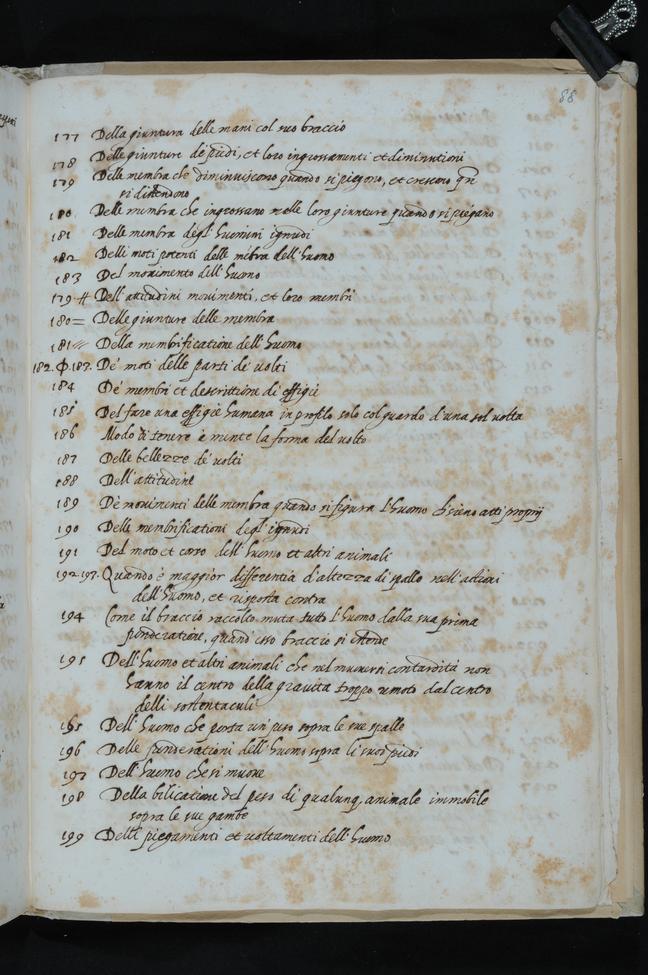 88
177 Della giuntura delle mani col suo braccio
178 Delle giunture de piedi, et loro ingrossamenti et diminutioni
179 Delle membra che diminuiscono quando si piegono, et crescono qñ
si distendono
180. Delle membra che ingrossano nelle loro giunture quando si piegano
181 Delle membra degl' huomini ignudi
182 Delli moti potenti delle mẽbra dell' huomo
183 Del movimento dell' huomo
179 # Dell' attitudini movimenti, et loro membri
180 = Delle giunture delle membra
181 // Della membrificatione dell' huomo
182. 183. De' moti delle parti de' volti
184 De' membri et descrittione di effigie
185 Del fare una effigie humana in profilo solo col guardo d'una sol volta
186 Modo di tenere à mente la forma del volto
187 Delle bellezze de' volti
188 Dell' attitudine
189 De' movimenti delle membra quando si figura l'huomo che sieno atti proprij
190 Delle membrificationi degl' ignudi
191 Del moto et corso dell' huomo et altri animali
192. 193. Quando è maggior differentia d'altezza di spalle nell' actioni
dell' huomo, et risposta contra
194 Come il braccio raccolto muta tutto l'huomo dalla sua prima
ponderatione, quand' esso braccio si estende
195 Dell' huomo et altri animali che nel muoversi con tardità non
hanno il centro della gravita troppo remoto dal centro
delli sostentaculi
195 Dell' huomo che porta un' peso sopra le sue spalle
196 Delle ponderationi dell' huomo sopra li suoi piedi
197 Dell' huomo che si muove
198 Della bilicatione del peso di qualunq, animale immobile
sopra le sue gambe
199 Delli piegamenti et voltamenti dell' huomo